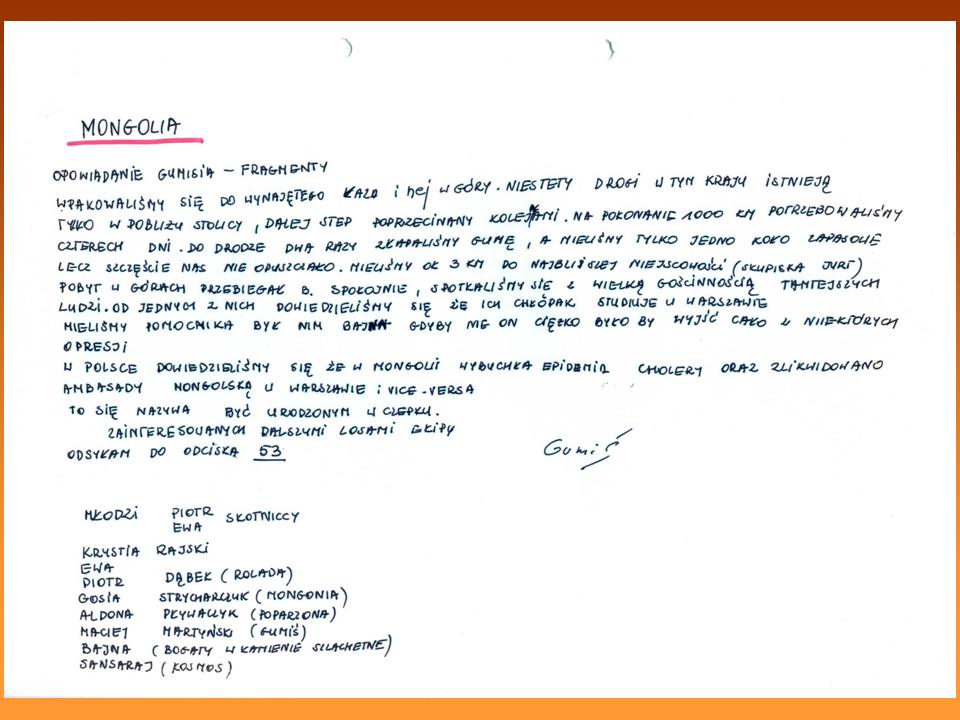 MONGOLIA
OPOWIADANIE GUMISIA – FRAGMENTY
WPAKOWALIŚMY SIĘ DO WYNAJĘTEGO KAZA i hej W GÓRY. NIESTETY DROGI W TYM KRAJU ISTNIEJĄ
TYŁKO W POBLIŻU STOLICY, DALEJ STEP POPRZECINANY KOLEJAMI. NA POKONANIE 1000 KM POTRZEBOWALIŚMY
CZTERECH DNI. DO DRODZE DWA RAZY ZŁAPALIŚMY GUMĘ, A MIELIŚMY TYLKO JEDNO KOŁO ZAPASOWE
LECZ SZCZĘŚCIE NAS NIE OPUSZCZAŁO. MIELIŚMY OK 3 KM DO NAJBLIŻSZEJ MIEJSCOWOŚCI (SKUPISKA JURT)
POBYT W GÓRACH PRZEBIEGAŁ B. SPOKOJNIE, SPOTKALIŚMY SIĘ Z WIELKĄ GOŚCINNOŚCIĄ TAMTEJSZYCH
LUDZI. OD JEDNYCH Z NICH DOWIEDZIELIŚMY SIĘ ŻE ICH CHŁOPAK STUDIUJE W WARSZAWIE
MIELIŚMY POMOCNIKA BYŁ NIM BAJNA GDYBY NIE ON CIĘŻKO BYŁO BY WYJŚĆ CAŁO Z NIEKTÓRYCH
OPRESJI
W POLSCE DOWIEDZIELIŚMY SIĘ ŻE W MONGOLI WYBUCHŁA EPIDEMIA CHOLERY ORAZ ZLIKWIDOWANO
AMBASADY MONGOLSKĄ W WARSZAWIE i VICE-VERSA
TO SIĘ NAZYWA BYĆ URODZONYM W CZEPKU.
ZAINTERESOWANYCH DALSZYMI LOSAMI EKIPY
ODSYŁAM DO ODCISKA 53
Gumiś
MŁODZI PIOTR EWA SKOTNICCY
KRYSTIA RAJSKI
EWA
PIOTR DĄBEK (ROLADA)
GOSIA STRYCHARCZUK (MONGONIA)
ALDONA PŁYWACZYK (POPARZONA)
MACIEJ MARTYŃSKI (GUMIŚ)
BAJNA (BOGATY W KAMIENIE SZLACHETNE)
SANSARAJ (KOSMOS)